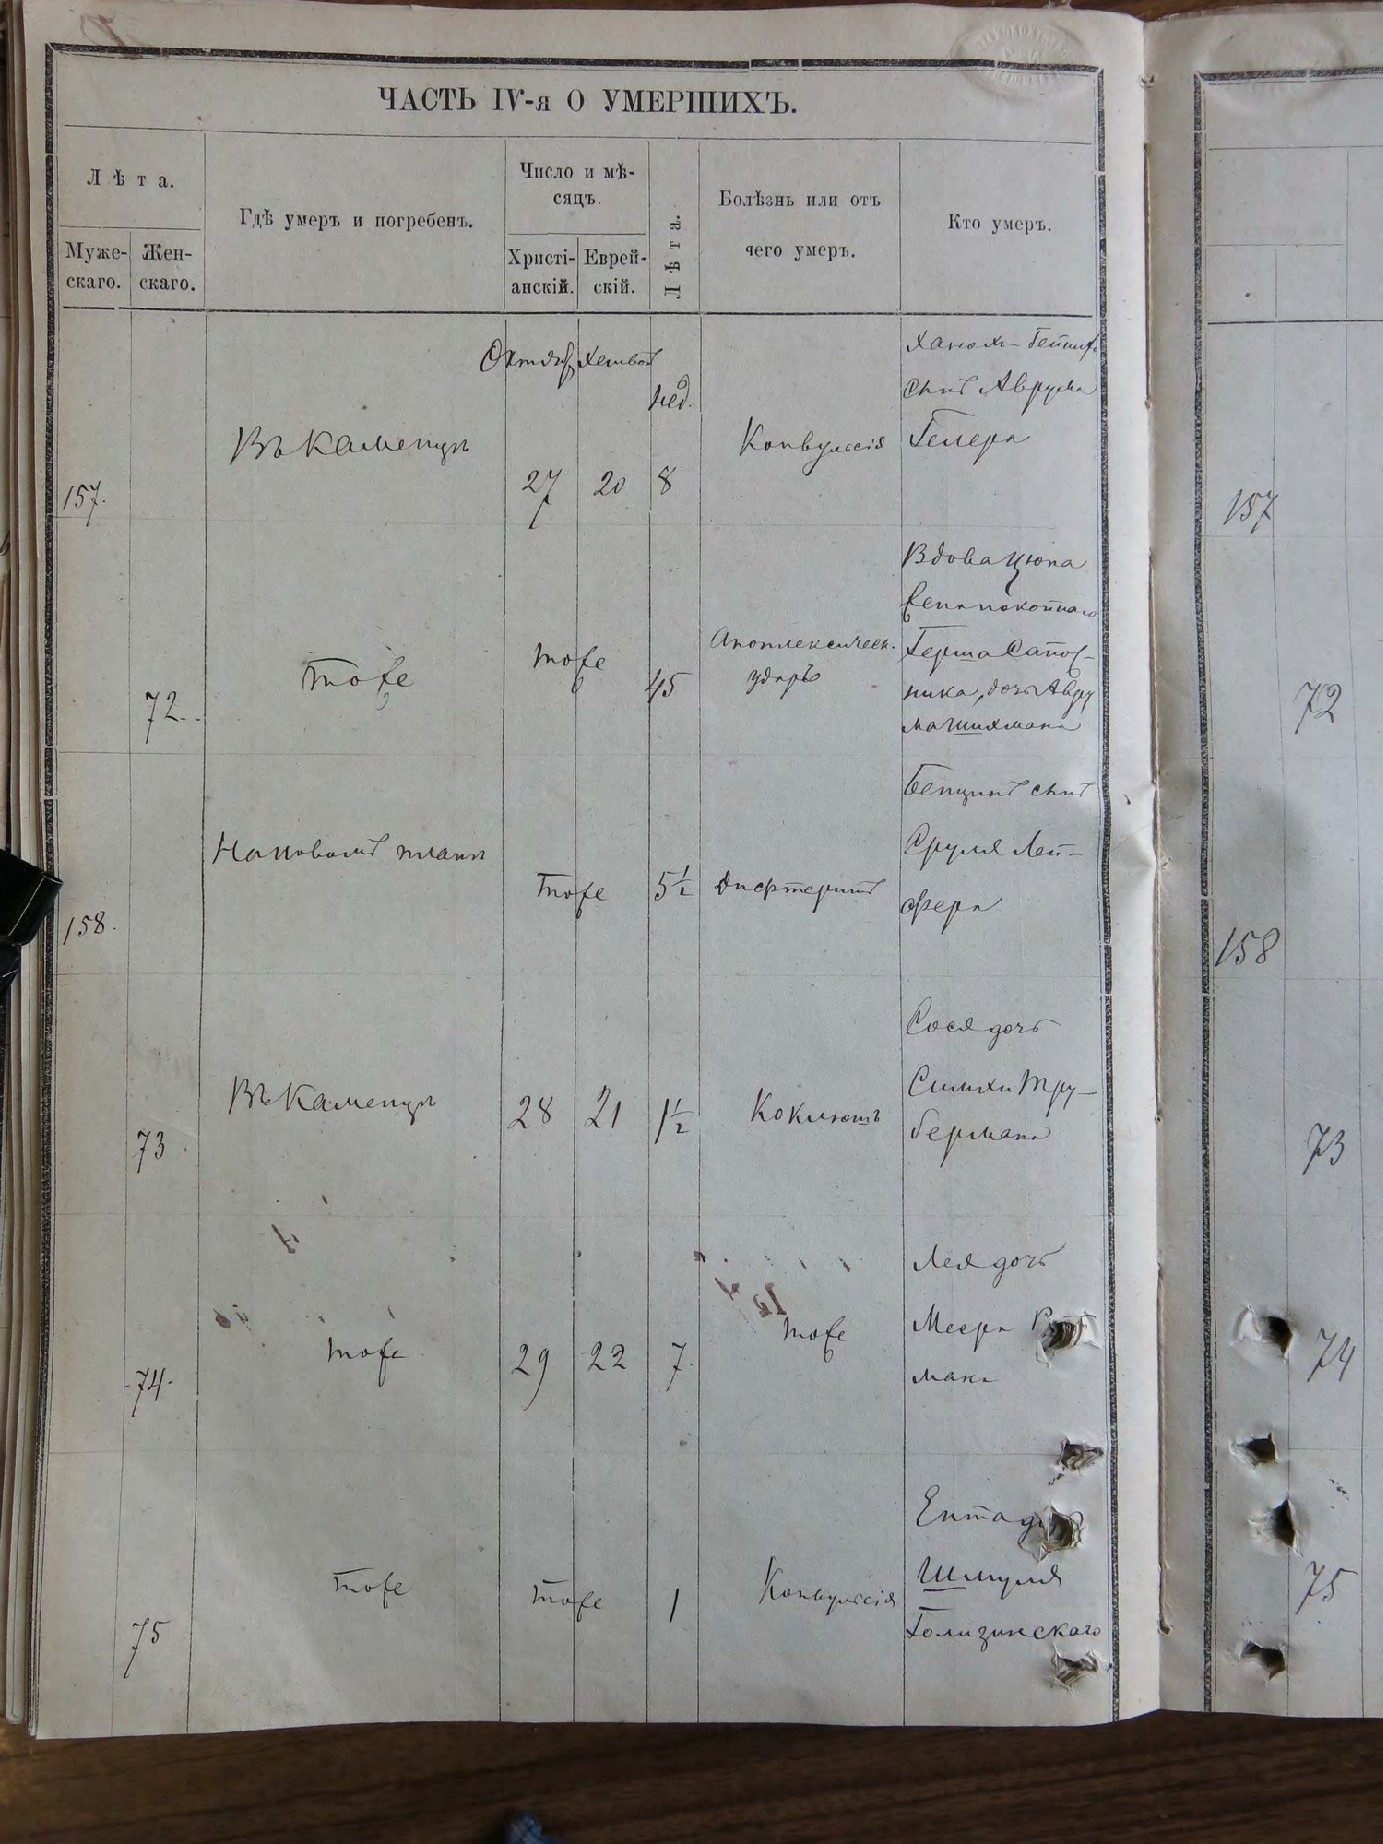 ЧАСТЬ IV-я О УМЕРШИХЪ.
Лѣта.
Муже-
скаго.
Жен-
скаго.
Гдѣ умеръ и погребенъ.
Число и мѣ-
сяцъ.
Христі-
анскій.
Еврей-
скій.
Лѣта.
Болѣзнь или отъ
чего умеръ.
Кто умеръ.
157.
Въ Каменцѣ
27
20
нед.
8
Конвульсія
сынъ Аврума
Гелера
72.
тоже
тоже
45
Апоплексическ.
ударъ
Вдова Цюпа
жена покойнаго
Герша Сапож-
ника, дочь Авру
ма Шихмана
158.
тоже
5½
Дифтеритъ
Бенціонъ сынъ
Сруля Лей-
фера
73
Въ Каменцѣ
28
21
1½
Коклюшъ
Сося дочь
Симхи Тру-
бермана
74.
тоже
29
22
7
тоже
Лея дочь
Меера
мана
75
тоже
тоже
1
Конвульсія
Ента
Шмуля
Голизинскаго
157
72
158
73
74
75